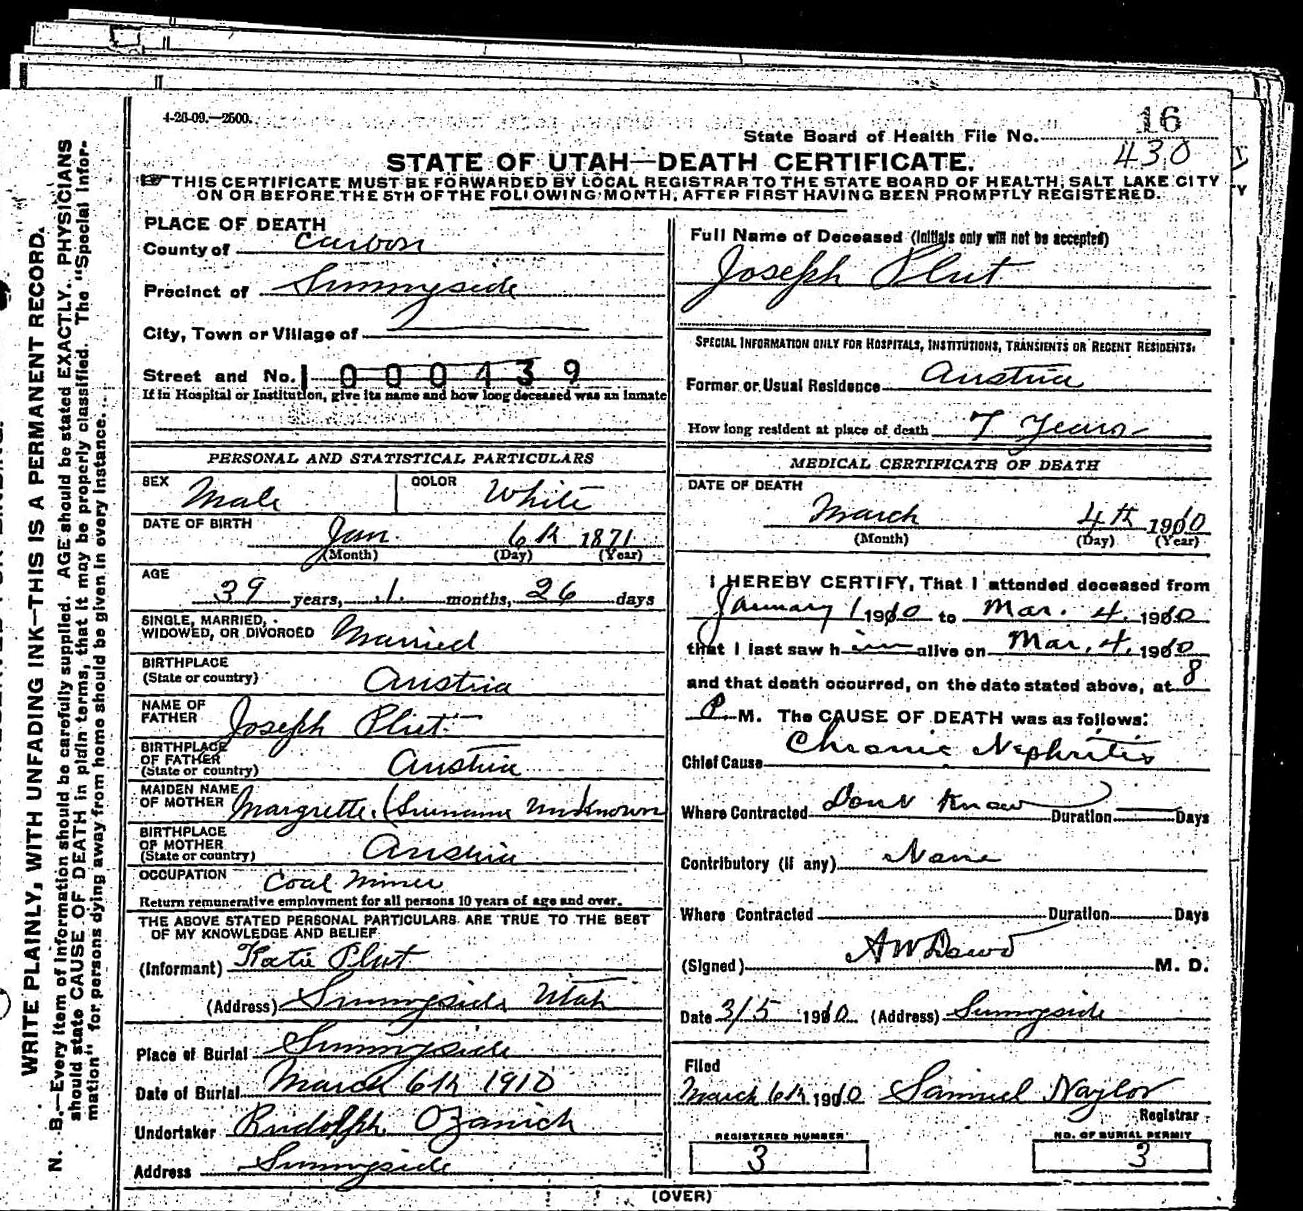 4-26-09.—2500.
16
State Board of Health File No.
430
STATE OF UTAH—DEATH CERTIFICATE.
THIS CERTIFICATE MUST BE FORWARDED BY LOCAL REGISTRAR TO THE STATE BOARD OF HEALTH, SALT LAKE CITY
ON OR BEFORE THE 5TH OF THE FOLLOWING MONTH, AFTER FIRST HAVING BEEN PROMPTLY REGISTERED.
WRITE PLAINLY, WITH UNFADING INK—THIS IS A PERMANENT RECORD.
N. B.—Every item of information should be carefully supplied. AGE should be stated EXACTLY. PHYSICIANS
should state CAUSE OF DEATH in plain terms, that it may be properly classified. The "Special Infor-
mation" for persons dying away from home should be given in every instance.
PLACE OF DEATH
County of Carbon
Precinct of Sunnyside
City, Town or Village of
Street and No. 000439
If in Hospital or Institution, give its name and how long deceased was an inmate
PERSONAL AND STATISTICAL PARTICULARS
SEX Male COLOR White
DATE OF BIRTH Jan. 6th 1871
(Month) (Day) (Year)
AGE
39 years, 1 months, 26 days
SINGLE, MARRIED,
WIDOWED, OR DIVORCED Married
BIRTHPLACE
(State or country) Austria
NAME OF
FATHER Joseph Plut
BIRTHPLACE
OF FATHER
(State or country) Austria
MAIDEN NAME
OF MOTHER Margrette (Surname Unknown
BIRTHPLACE
OF MOTHER
(State or country) Austria
OCCUPATION Coal Miner
Return remunerative employment for all persons 10 years of age and over.
THE ABOVE STATED PERSONAL PARTICULARS ARE TRUE TO THE BEST
OF MY KNOWLEDGE AND BELIEF
(Informant) Katie Plut
(Address) Sunnyside Utah
Place of Burial Sunnyside
Date of Burial March 6th 1910
Undertaker Rudolph Ozanich
Address Sunnyside
Full Name of Deceased (Initials only will not be accepted)
Joseph Plut
SPECIAL INFORMATION ONLY FOR HOSPITALS, INSTITUTIONS, TRANSIENTS OR RECENT RESIDENTS.
Former or Usual Residence Austria
How long resident at place of death 7 Years
MEDICAL CERTIFICATE OF DEATH
DATE OF DEATH
March 4th 1910
(Month) (Day) (Year)
I HEREBY CERTIFY, That I attended deceased from
January 1 1910 to Mar. 4. 1910
that I last saw him alive on Mar. 4. 1910
and that death occurred, on the date stated above, at 8
P. M. The CAUSE OF DEATH was as follows:
Chief Cause Chronic Nephritis
Where Contracted Don't Know Duration Days
Contributory (if any) None
Where Contracted Duration Days
(Signed) M. D.
Date 3/5 1910 (Address) Sunnyside
Filed
March 6th 1910 Samuel Naylor
Registrar
REGISTERED NUMBER
3
NO. OF BURIAL PERMIT
3
(OVER)